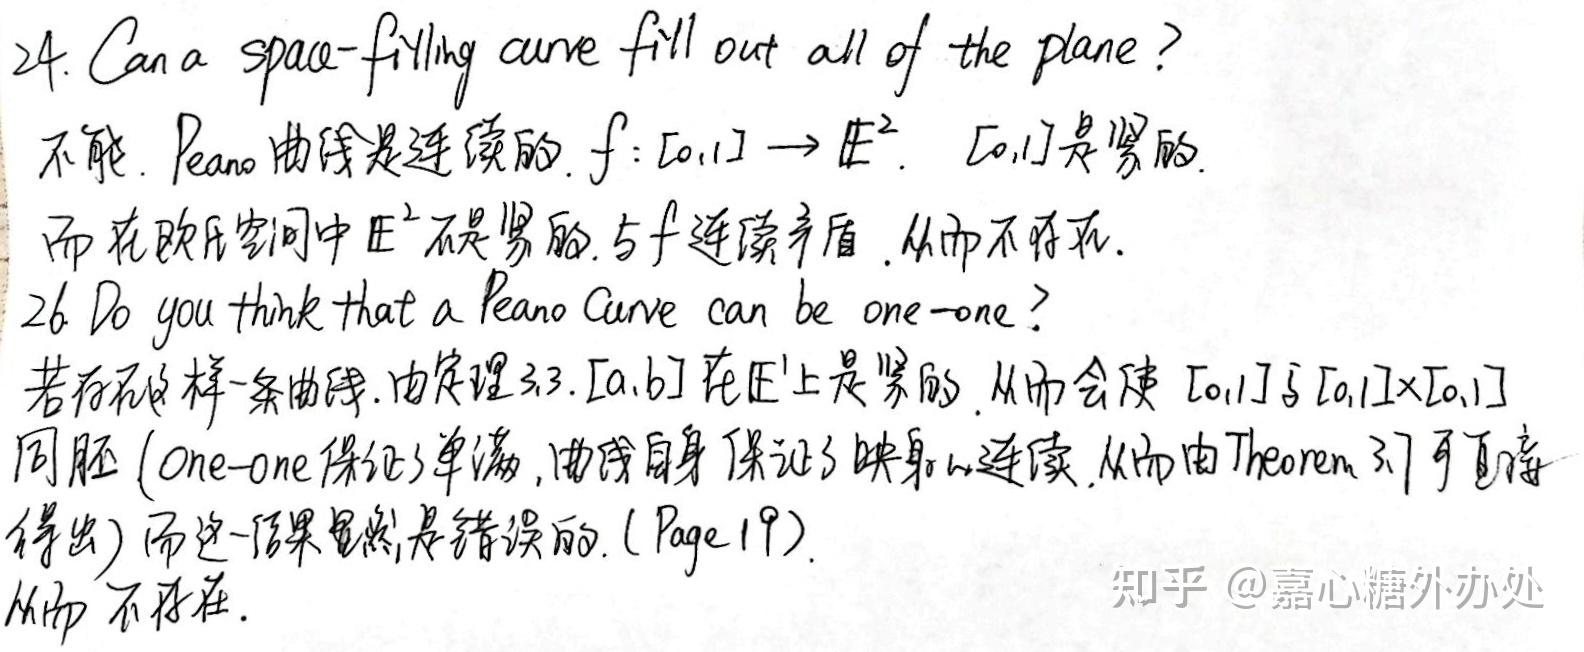 24. Can a space-filling curve fill out all of the plane?
不能. Peano 曲线是连续的. f: [0,1] → E². [0,1]是紧的.
而在欧氏空间中 E² 不是紧的. 与 f 连续矛盾. 从而不存在.
26. Do you think that a Peano Curve can be one-one?
若存在这样一条曲线. 由定理3.3. [a,b] 在 E¹ 上是紧的. 从而会使 [0,1] 与 [0,1]×[0,1]
同胚 (One-one 保证了单满, 曲线自身保证了映射的连续. 从而由 Theorem 3.7 可直接
得出) 而这一结果显然是错误的. (Page 19).
从而不存在.
知乎 @嘉心糖外办处